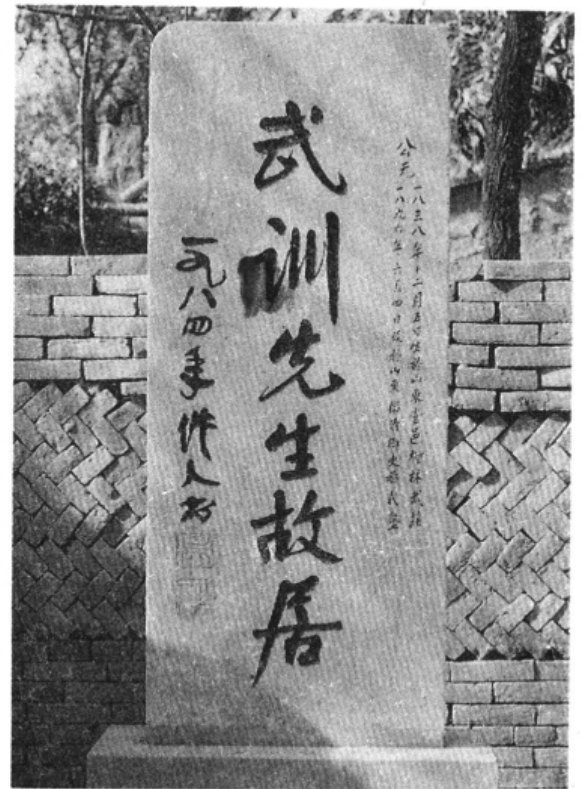 公元一八三八年十二月五日生於山東堂邑柳林武莊
一八九六年六月四日歿於山東臨清御史巷義塾
武訓先生故居
一九八四年